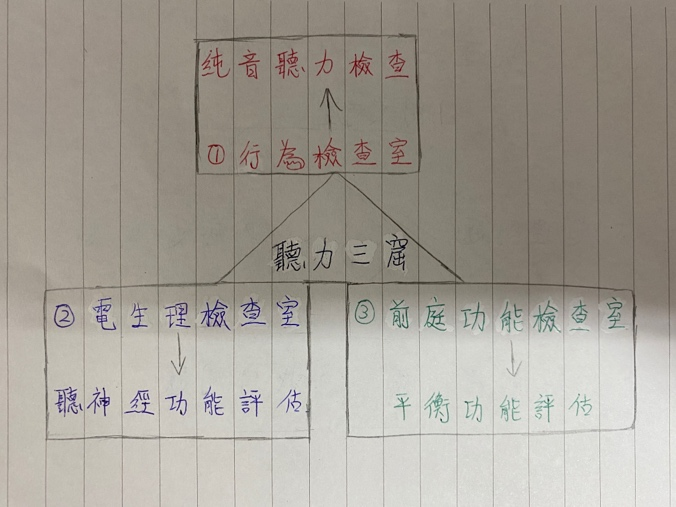 純音聽力檢查
① 行為檢查室
聽力三窟
② 電生理檢查室
聽神經功能評估
③ 前庭功能檢查室
平衡功能評估